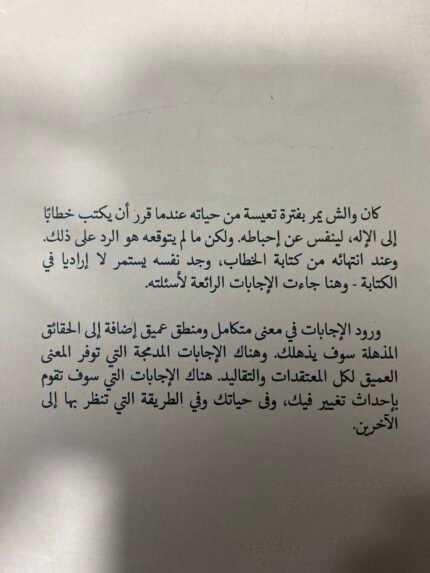 كان والش يمر بفترة تعيسة من حياته عندما قرر أن يكتب خطابًا
إلى الإله، لينفس عن إحباطه. ولكن ما لم يتوقعه هو الرد على ذلك.
وعند انتهائه من كتابة الخطاب، وجد نفسه يستمر لا إراديا في
الكتابة - وهنا جاءت الإجابات الرائعة لأسئلته.
ورود الإجابات في معنى متكامل ومنطق عميق إضافة إلى الحقائق
المذهلة سوف يذهلك. وهناك الإجابات المدمجة التي توفر المعنى
العميق لكل المعتقدات والتقاليد. هناك الإجابات التي سوف تقوم
بإحداث تغيير فيك، وفى حياتك وفي الطريقة التي تنظر بها إلى
الآخرين.